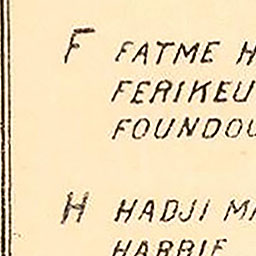 F FATME H
FERIKEU
FOUNDOU
H HADJI MA
HARBIE